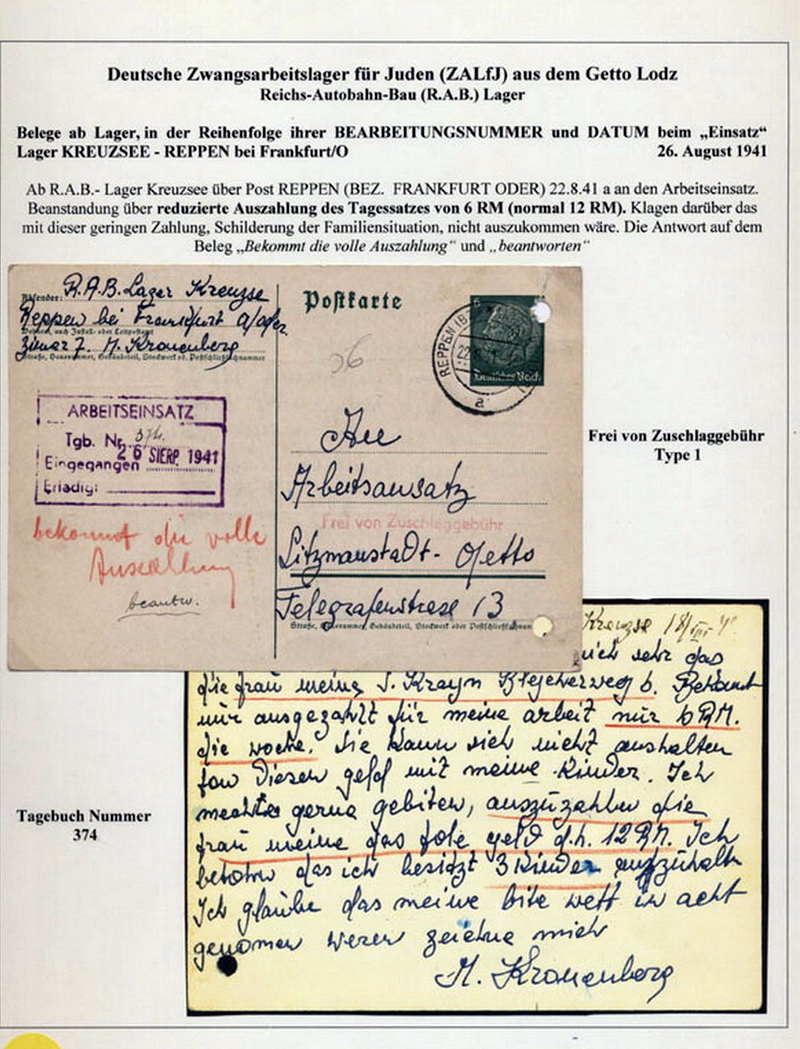 Deutsche Zwangsarbeitslager für Juden (ZALfJ) aus dem Getto Lodz
Reichs-Autobahn-Bau (R.A.B.) Lager
Belege ab Lager, in der Reihenfolge ihrer BEARBEITUNGSNUMMER und DATUM beim „Einsatz“
Lager KREUZSEE - REPPEN bei Frankfurt/O 26. August 1941
Ab R.A.B.- Lager Kreuzsee über Post REPPEN (BEZ. FRANKFURT ODER) 22.8.41 a an den Arbeitseinsatz.
Beanstandung über reduzierte Auszahlung des Tagessatzes von 6 RM (normal 12 RM). Klagen darüber das
mit dieser geringen Zahlung, Schilderung der Familiensituation, nicht auszukommen wäre. Die Antwort auf dem
Beleg „Bekommt die volle Auszahlung“ und „beantworten“
Absender: R.A.B. Lager Kreuzse
Reppen bei Frankfurt a/oder
Wohnort, auch Zustell- oder Leitpostamt
Zimer 7. M. Kronenberg
Straße, Hausnummer, Gebäudeteil, Stockwerk od. Postschließfachnummer
Postkarte
6
Deutsches Reich
REPPEN
22.8.
a
ARBEITSEINSATZ
Tgb. Nr. 374
Eingegangen 26 SIERP. 1941
Erledigt
bekommt die volle
Auszahlung
beantw.
An
Arbeitsansatz
Frei von Zuschlaggebühr
Litzmanstadt - Getto
Telegrafenstrase 13
Straße, Hausnummer, Gebäudeteil, Stockwerk oder Postschließfachnum
Frei von Zuschlaggebühr
Type 1
Kreuzse 18/VIII 4
mich sehr das
die frau meine S. Krayn Blejcherweg 6. Bekomt
nur ausgezahlt für meine arbeit nur 6 RM.
die woche. Sie kann sich nicht aushalten
fon diesen geld mit meine Kinder. Ich
mechte gerne gebiten, auszuzahlen die
frau meine das fole geld d.h. 12 RM. Ich
betohn das ich besitzt 3 Kinder aufzuhalt
Ich glaube das meine bite wett in acht
genomen weren zeichne mich
M. Kronenberg
Tagebuch Nummer
374